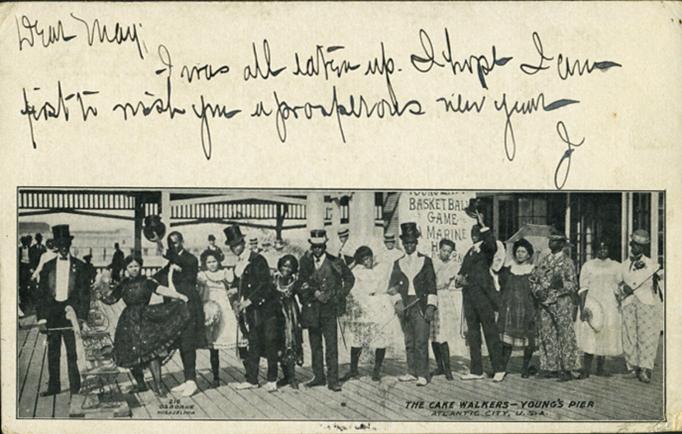 Dear May,
I was all eaten up. I hope I am
first to wish you a prosperous new year
J
BASKETBALL
GAME
MARINE
THE CAKE WALKERS—YOUNG'S PIER
ATLANTIC CITY, U.S.A.